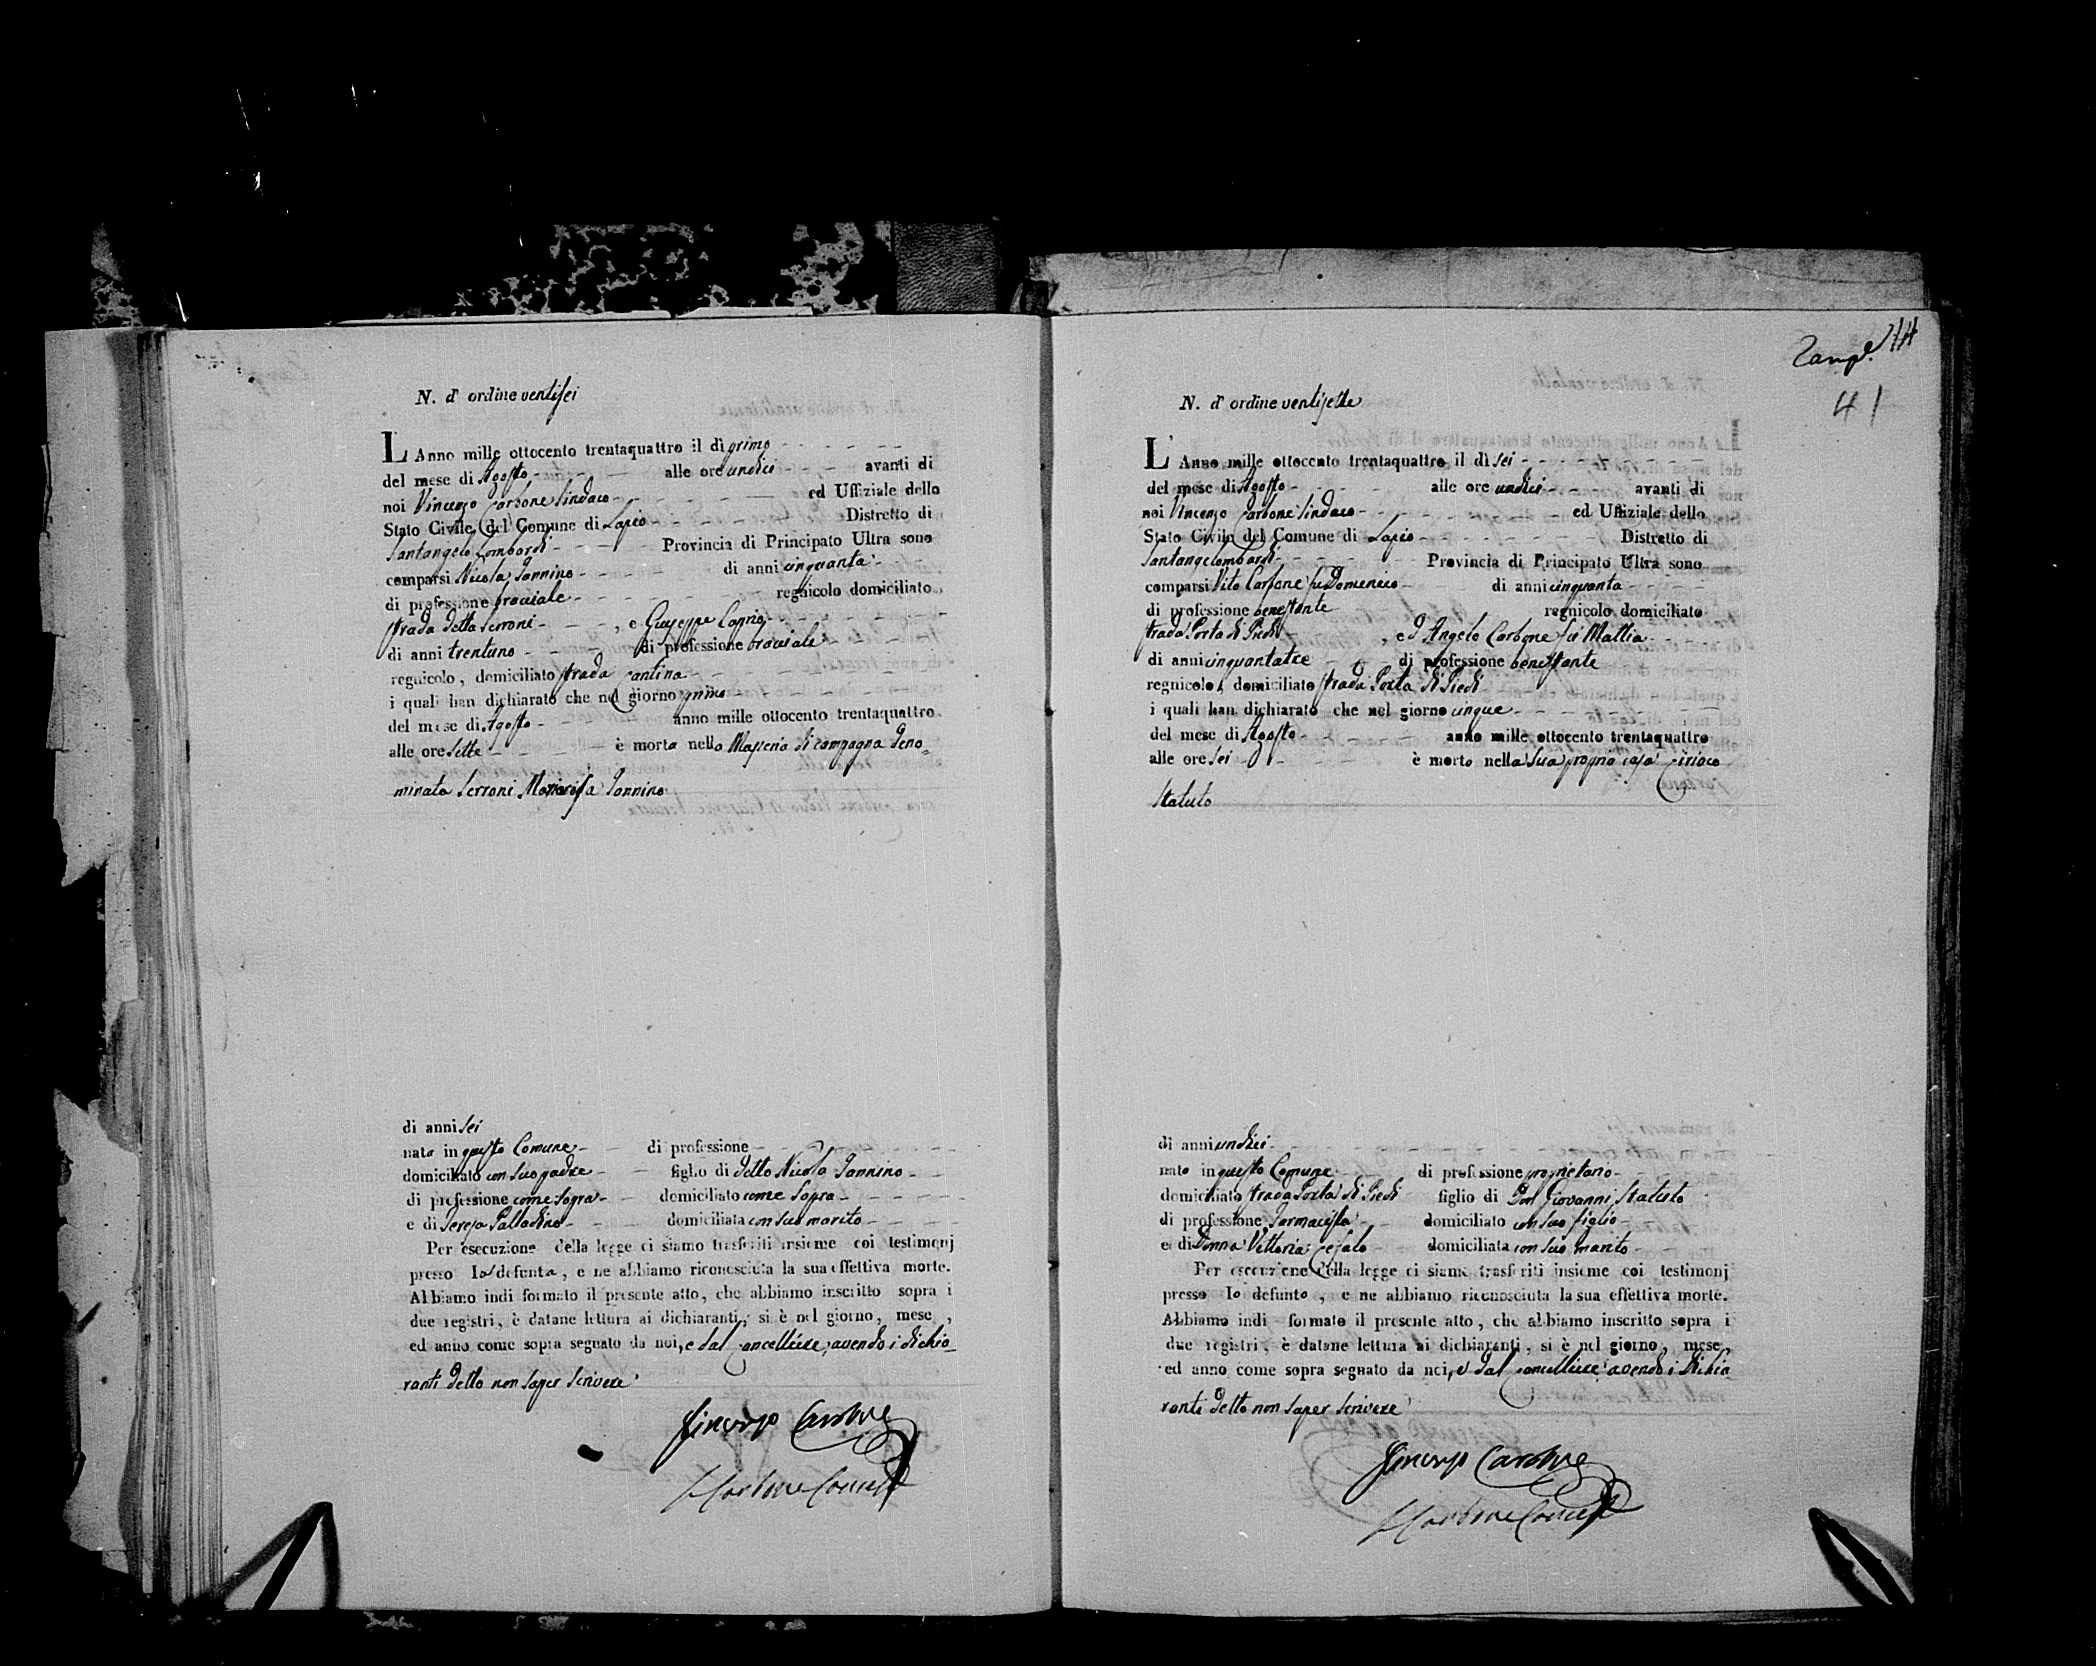 N. d' ordine ventisei
L'Anno mille ottocento trentaquattro il dì primo
del mese di Agosto alle ore undici avanti di
noi Vincenzo Carbone Sindaco ed Uffiziale dello
Stato Civile del Comune di Lapio Distretto di
Santangelo Lombardi Provincia di Principato Ultra sono
comparsi Nicola Iannino di anni cinquanta
di professione bracciale regnicolo domiciliato
strada detta Serroni , e Giuseppe Caprio
di anni trentuno di professione bracciale
regnicolo, domiciliato strada cantina
i quali han dichiarato che nel giorno primo
del mese di Agosto anno mille ottocento trentaquattro
alle ore sette è morta nella Masseria di campagna deno
minata Serroni Iannino
di anni sei
nata in questo Comune di professione
domiciliato con suo padre figlio di detto Nicola Iannino
di professione come sopra domiciliato come sopra
e di Teresa Palladino domiciliata con suo marito
Per esecuzione della legge ci siamo trasferiti insieme coi testimonj
presso la defunta, e ne abbiamo riconosciuta la sua effettiva morte.
Abbiamo indi formato il presente atto, che abbiamo inscritto sopra i
due registri, è datane lettura ai dichiaranti, si è nel giorno, mese,
ed anno come sopra segnato da noi, e dal cancelliere, avendo i dichia
ranti detto non saper scrivere
Vincenzo Carbone
Carbone
41
N. d' ordine ventisette
L'Anno mille ottocento trentaquattro il dì sei
del mese di Agosto alle ore undici avanti di
noi Vincenzo Carbone Sindaco ed Uffiziale dello
Stato Civile del Comune di Lapio Distretto di
Santangelombardi Provincia di Principato Ultra sono
comparsi Vito Carbone fu Domenico di anni cinquanta
di professione benestante regnicolo domiciliato
strada Porta di Piedi , e D. Angelo Carbone fu Mattia
di anni cinquantatre di professione benestante
regnicolo, domiciliato strada Porta di Piedi
i quali han dichiarato che nel giorno cinque
del mese di Agosto anno mille ottocento trentaquattro
alle ore sei è morto nella sua propria casa Ciriaco
Statuto
di anni undici
nato in questo Comune di professione proprietario
domiciliato strada Porta di Piedi figlio di Don Giovanni Statuto
di professione Farmacista domiciliato con suo figlio
e di Donna Vittoria Cefalo domiciliata con suo marito
Per esecuzione della legge ci siamo trasferiti insieme coi testimonj
presso lo defunto, e ne abbiamo riconosciuta la sua effettiva morte.
Abbiamo indi formato il presente atto, che abbiamo inscritto sopra i
due registri, è datane lettura ai dichiaranti, si è nel giorno, mese,
ed anno come sopra segnato da noi, e dal cancelliere avendo i dichia
ranti detto non saper scrivere
Vincenzo Carbone
Carbone